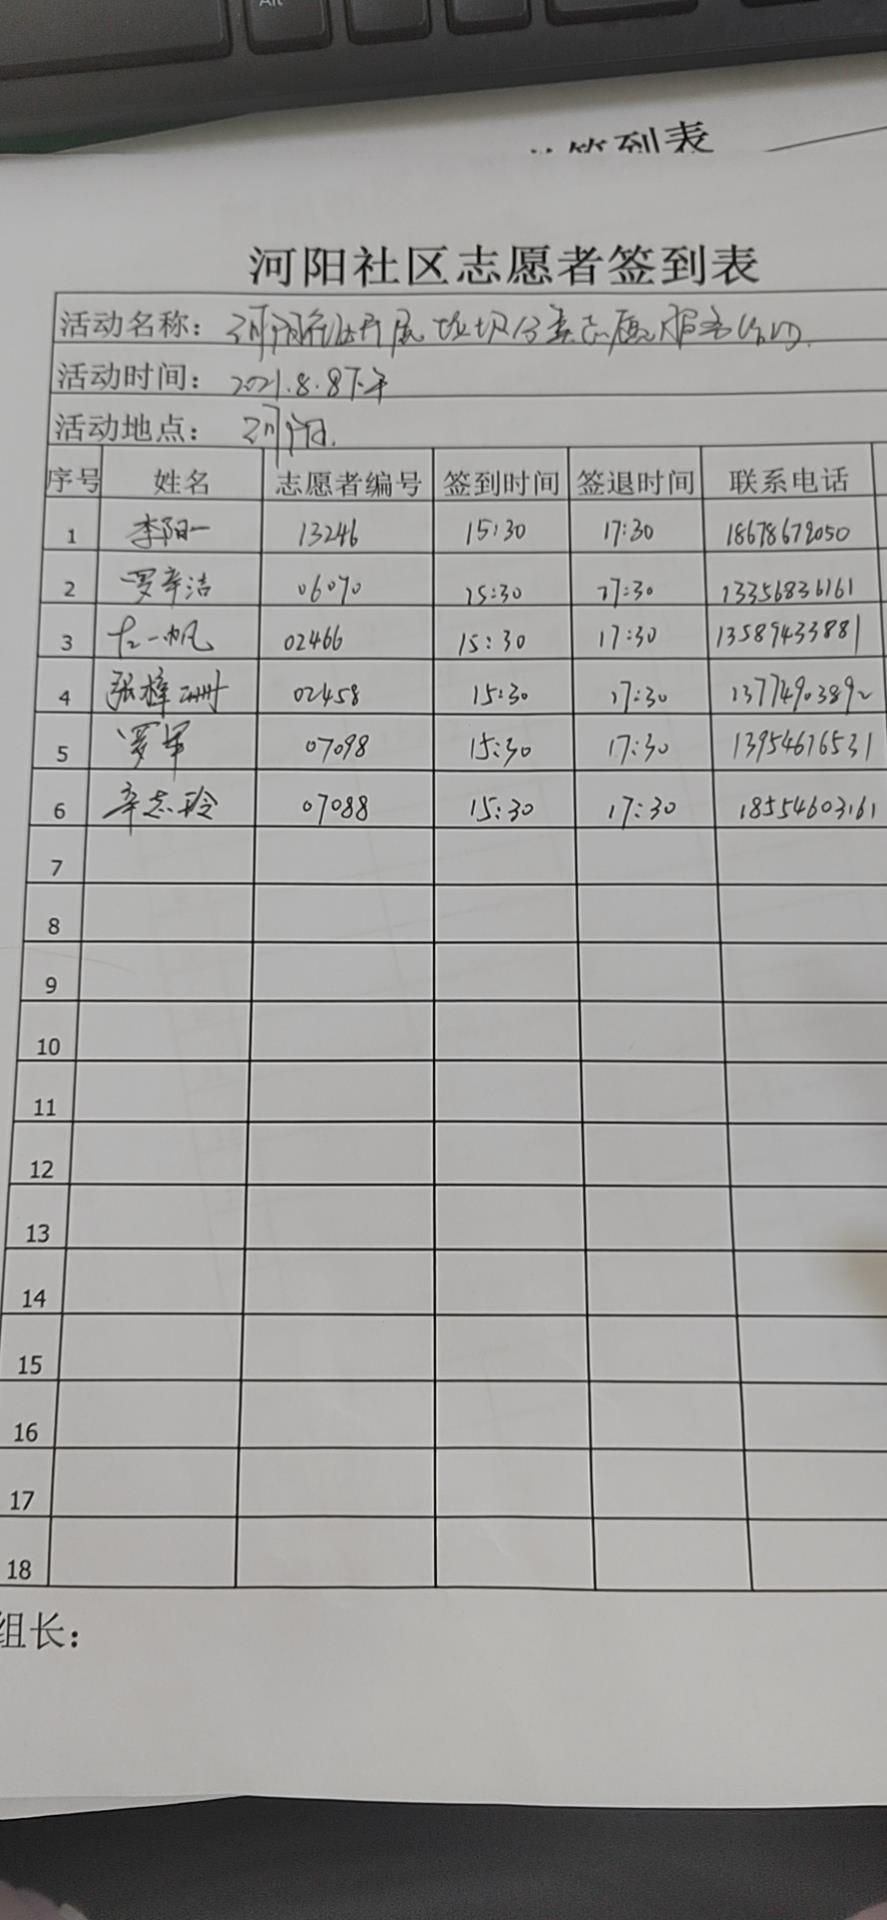 Alt
签到表
河阳社区志愿者签到表
活动名称：河阳社区开展垃圾分类志愿服务活动.
活动时间：2021.8.8下午
活动地点：河阳.
序号 姓名 志愿者编号 签到时间 签退时间 联系电话
1 李阳一 13246 15:30 17:30 18678672050
2 罗辛洁 06070 15:30 17:30 13356836161
3 左一帆 02466 15:30 17:30 13589433881
4 张梓珊 02458 15:30 17:30 13774903892
5 罗军 07098 15:30 17:30 13954676531
6 辛志玲 07088 15:30 17:30 18554603161
7
8
9
10
11
12
13
14
15
16
17
18
组长：